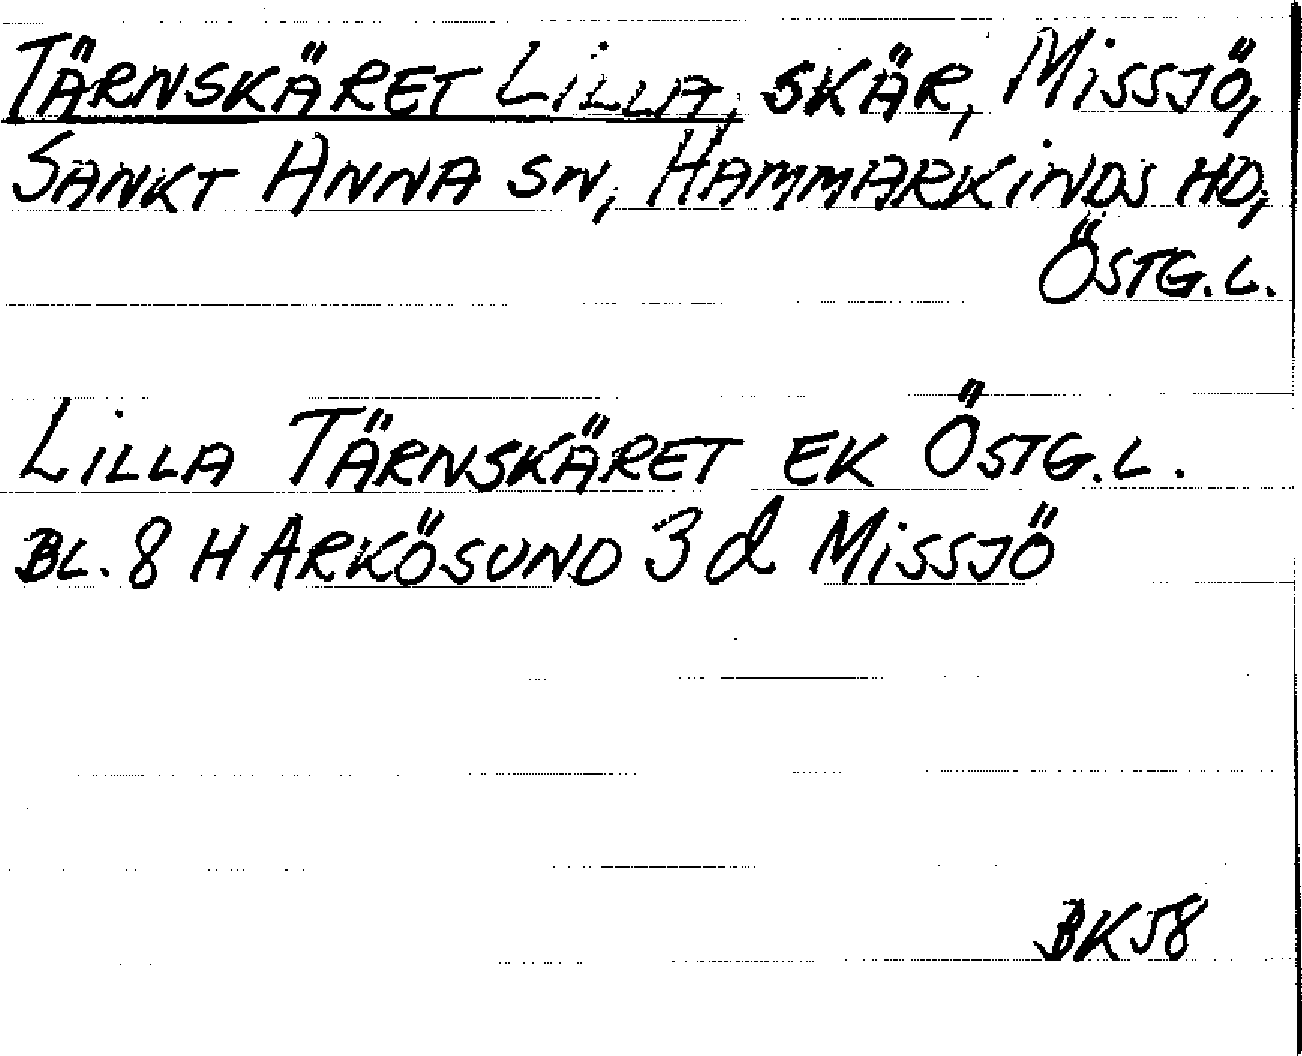 TÄRNSKÄRET LILLA, SKÄR, MISSJÖ,
SANKT ANNA SN, HAMMARKINDS HD,
ÖSTG.L.
LILLA TÄRNSKÄRET EK ÖSTG.L.
BL. 8 H ARKÖSUND 3 d MISSJÖ
BK58